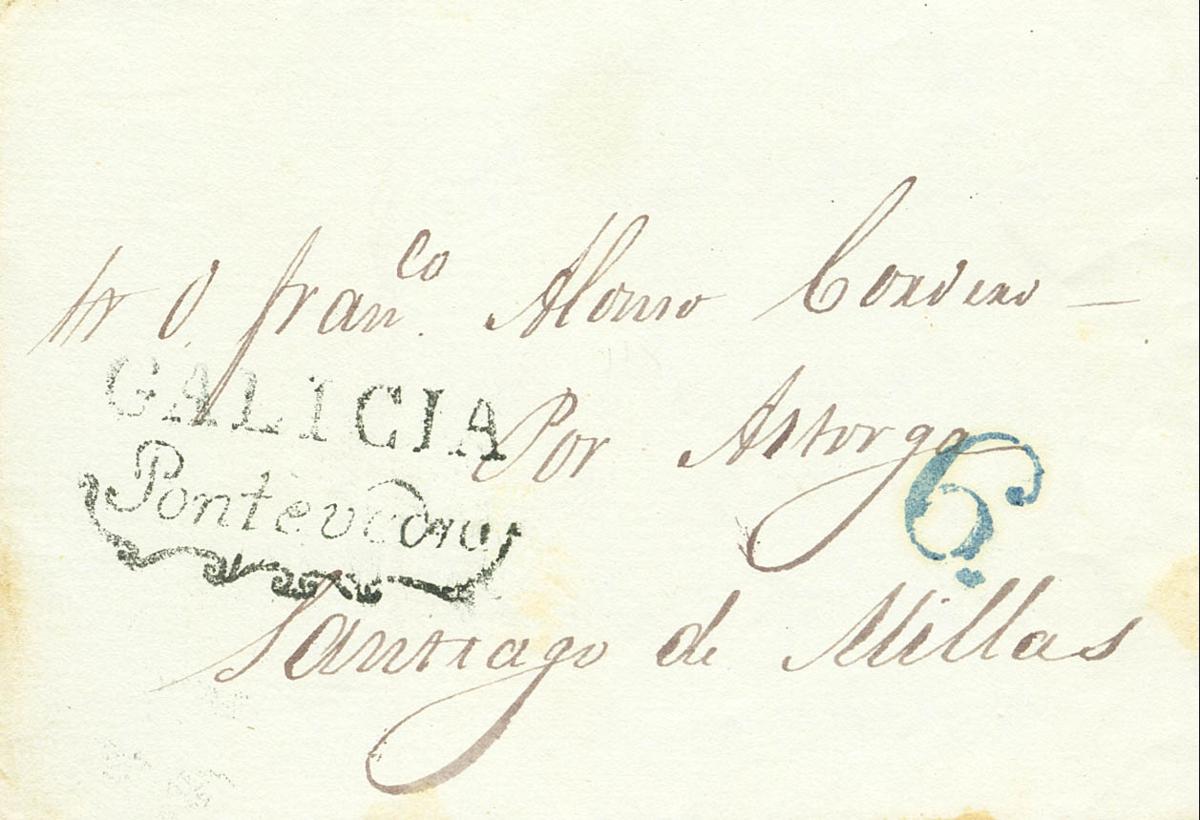 Sr D. Franco. Alonso Cordero —
GALICIA
Por Astorga
Pontevedra
6
Santiago de Millas